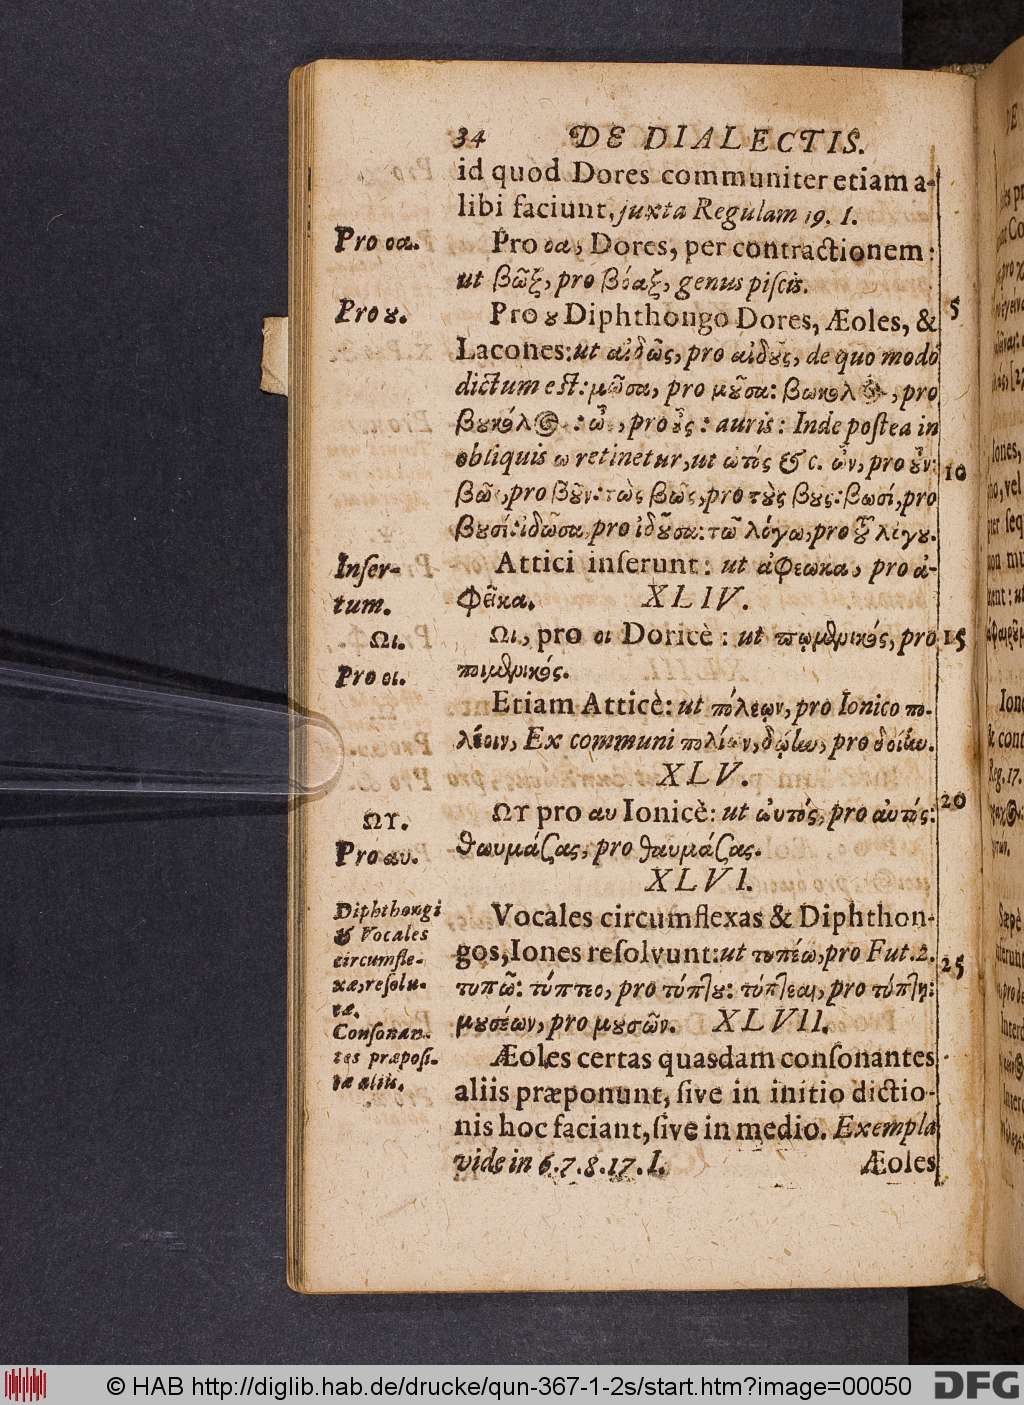 34 DE DIALECTIS.
id quod Dores communiter etiam a-
libi faciunt, juxta Regulam 19. I.
Pro οα.
Pro οα, Dores, per contractionem:
ut βῶξ, pro βόαξ, genus piſcis.
Pro ȣ.
Pro ȣ Diphthongo Dores, Æoles, &
5
Lacones: ut αἰδῶς, pro αἰδȣ͂ς, de quo modò
dictum eſt: μῶσα, pro μȣ͂σα: βωκόλ , pro
βȣκόλ : ὦ , pro ȣ͂ς: auris: Inde poſtea in
obliquis ω retinetur, ut ὠτός &c. ὦν, pro ȣ͂ν:
10
βῶν, pro βȣ͂ν: τὼς βῶς, pro τȣ̀ς βȣς: βωσί, pro
βȣσί: ἰδῶσα, pro ἰδȣ͂σα: τῶ λόγω, pro τȣ͂ λόγȣ.
Inſer-
tum.
Attici inſerunt: ut ἀφεωκα, pro ἀ-
φεῖκα. XLIV.
Ωι.
Pro οι.
Ωι, pro οι Doricè: ut πῳμενικός, pro
15
ποιμενικός.
Etiam Atticè: ut πόλεῳν, pro Ionico πο-
λέοιν, Ex communi πολίοιν, δῴην, pro δοίην.
XLV.
ΩΥ.
Pro αυ.
20
ΩΥ pro αυ Ionicè: ut ὠυτός, pro αὐτός:
θωυμάζας, pro θαυμάζας.
XLVI.
Diphthongi
& Vocales
circumfle-
xæ, reſolu-
tæ.
Vocales circumflexas & Diphthon-
gos, Iones reſolvunt: ut τυπέω, pro Fut. 2.
25
τυπῶ: τύπτεο, pro τύπτȣ: τύπτεαι, pro τύπτῃ:
μȣσέων, pro μȣσῶν. XLVII.
Conſonan-
tes præpoſi-
tæ aliis.
Æoles certas quasdam conſonantes
aliis præponunt, ſive in initio dictio-
nis hoc faciant, ſive in medio. Exempla
vide in 6. 7. 8. 17. I. Æoles
© HAB http://diglib.hab.de/drucke/qun-367-1-2s/start.htm?image=00050
DFG